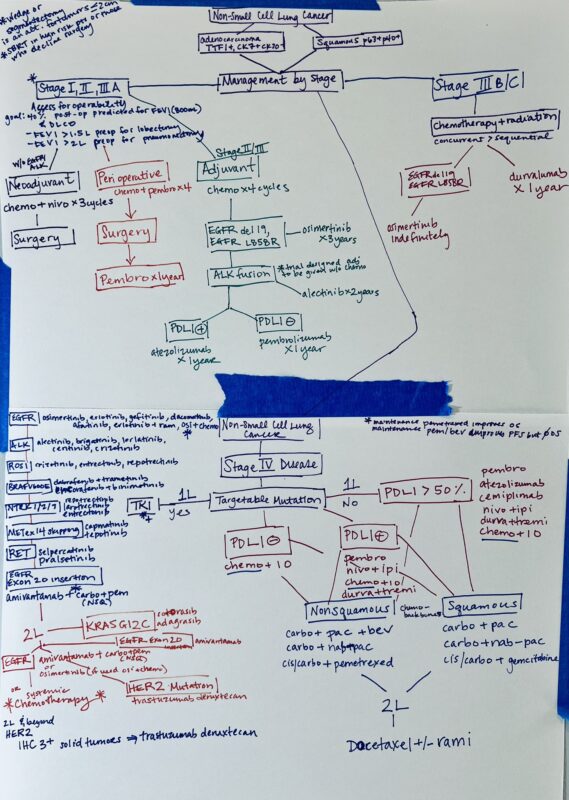 *Wedge or
segmentectomy
is an alt. for tumors ≤2cm
*SBRT in high risk pts or those
who decline surgery
Non-Small Cell Lung Cancer
adenocarcinoma
TTF1+, CK7+ CK20-
Squamous p63+ p40+
Management by Stage
* Stage I, II, IIIA
Assess for operability
goal: 40% post-op predicted for FEV1 (800mL)
& DLCO
-FEV1 >1.5L preop for lobectomy
-FEV1 >2L preop for pneumonectomy
w/o EGFR/
ALK
Neoadjuvant
chemo + nivo x3cycles
Surgery
Perioperative
chemo + pembro x4
Surgery
Pembro x1year
Stage II/III
Adjuvant
chemo x4 cycles
EGFR del 19,
EGFR L858R
osimertinib
x3years
ALK fusion
*trial designed adj
to be given w/o chemo
alectinib x2years
PDL1 +
atezolizumab
x1year
PDL1 ⊖
pembrolizumab
x1year
Stage III B/C
Chemotherapy + radiation
concurrent > sequential
EGFR del 19
EGFR L858R
osimertinib
indefinitely
durvalumab
x1year
Non-Small Cell Lung
Cancer
Stage IV Disease
Targetable Mutation
*maintenance pemetrexed improves OS
maintenance pem/bev improves PFS but
1L
yes
TKI
*+
EGFR osimertinib, erlotinib, gefitinib, dacomitinib,
afatinib, erlotinib + ram, osi + chemo
*
ALK alectinib, brigatinib, lorlatinib,
ceritinib, crizotinib
ROS1 crizotinib, entrectinib, repotrectinib
BRAFV600E dabrafenib + trametinib
encorafenib + binimetinib
NTRK 1/2/3 repotrectinib
larotrectinib
entrectinib
METex14 skipping capmatinib
tepotinib
RET selpercatinib
pralsetinib
EGFR
Exon 20 insertion
*
amivantamab + carbo + pem
(NSQ)
2L
KRASG12C sotorasib
adagrasib
EGFR Exon 20
insertion amivantamab
EGFR amivantamab + carbo + pem
(NSQ)
or
osimertinib
HER2 Mutation
trastuzumab deruxtecan
or systemic
*Chemotherapy*
2L & beyond
HER2
IHC 3+ solid tumors ⇒ trastuzumab deruxtecan
1L
No
PDL1 > 50%
pembro
atezolizumab
cemiplimab
nivo + ipi
durva + tremi
chemo + IO
PDL1 ⊖
chemo + IO
PDL1 ⊕
pembro
nivo + ipi
chemo + IO
durva + tremi
Nonsquamous
carbo + pac + bev
carbo + nab-pac
cis/carbo + pemetrexed
chemo-
backbones
Squamous
carbo + pac
carbo + nab-pac
cis/carbo + gemcitabine
2L
Docetaxel +/- rami